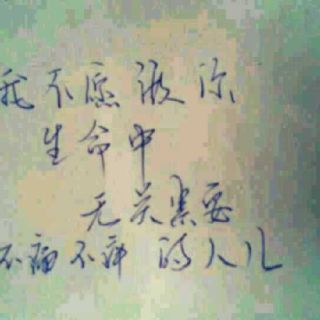 我不愿做你
生命中
无关紧要
不痛不痒的人儿